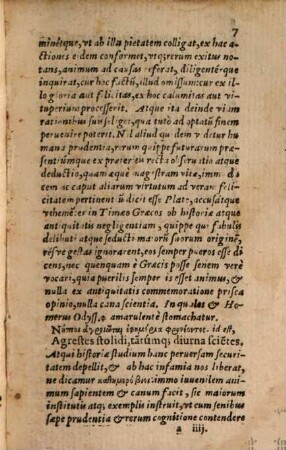 7
minétque, vt ab illa pietatem colligat, ex hac a-
ctiones eidem conformet, vtq; rerum exitus no-
tans, animum ad causas referat, diligentérque
inquirat, cur hoc factũ, illud omissum: cur ex il-
lo gloria aut felicitas, ex hoc calumitas aut vi-
tuperium processerit. Atque ita deinde viam
rationibus suis eligat, qua tutò ad optatũ finem
peruenire poterit. Nil aliud quidem videtur hu-
mana prudentia, rerum quippe futurarum præ-
sentiúmque ex præteritis recta obseruatio atque
deductio, quam æque magistram vitæ,
cem ac caput aliarum virtutum ad veram feli-
citatem pertinentiũ dicit esse Plato, accusatque
vehementer in Timæo Græcos ob historiæ atque
antiquitatis negligentiam, quippe qui fabulis
delibuti atque seducti maiorũ suorum originẽ,
resue gestas ignorarent, eos semper pueros esse di-
cens, nec quenquam è Græcis posse senem verè
vocari, quia puerilis semper is esset animus, &
nulla ex antiquitatis commemoratione prisca
opinio, nulla cana scientia. In quales & Ho-
merus Odyss. amarulentè stomachatur.
id est,
Agrestes stolidi, tãtumq; diurna sciẽtes.
Atqui historiæ studium hanc peruersam securi-
tatem depellit, & ab hac infamia nos liberat,
ne dicamur immo iuuenilem ani-
mum sapientem & canum facit, sic maiorum
institutis atq; exemplis instruit, vt cum senibus
sæpe prudentia & rerum cognitione contendere
a iiij.